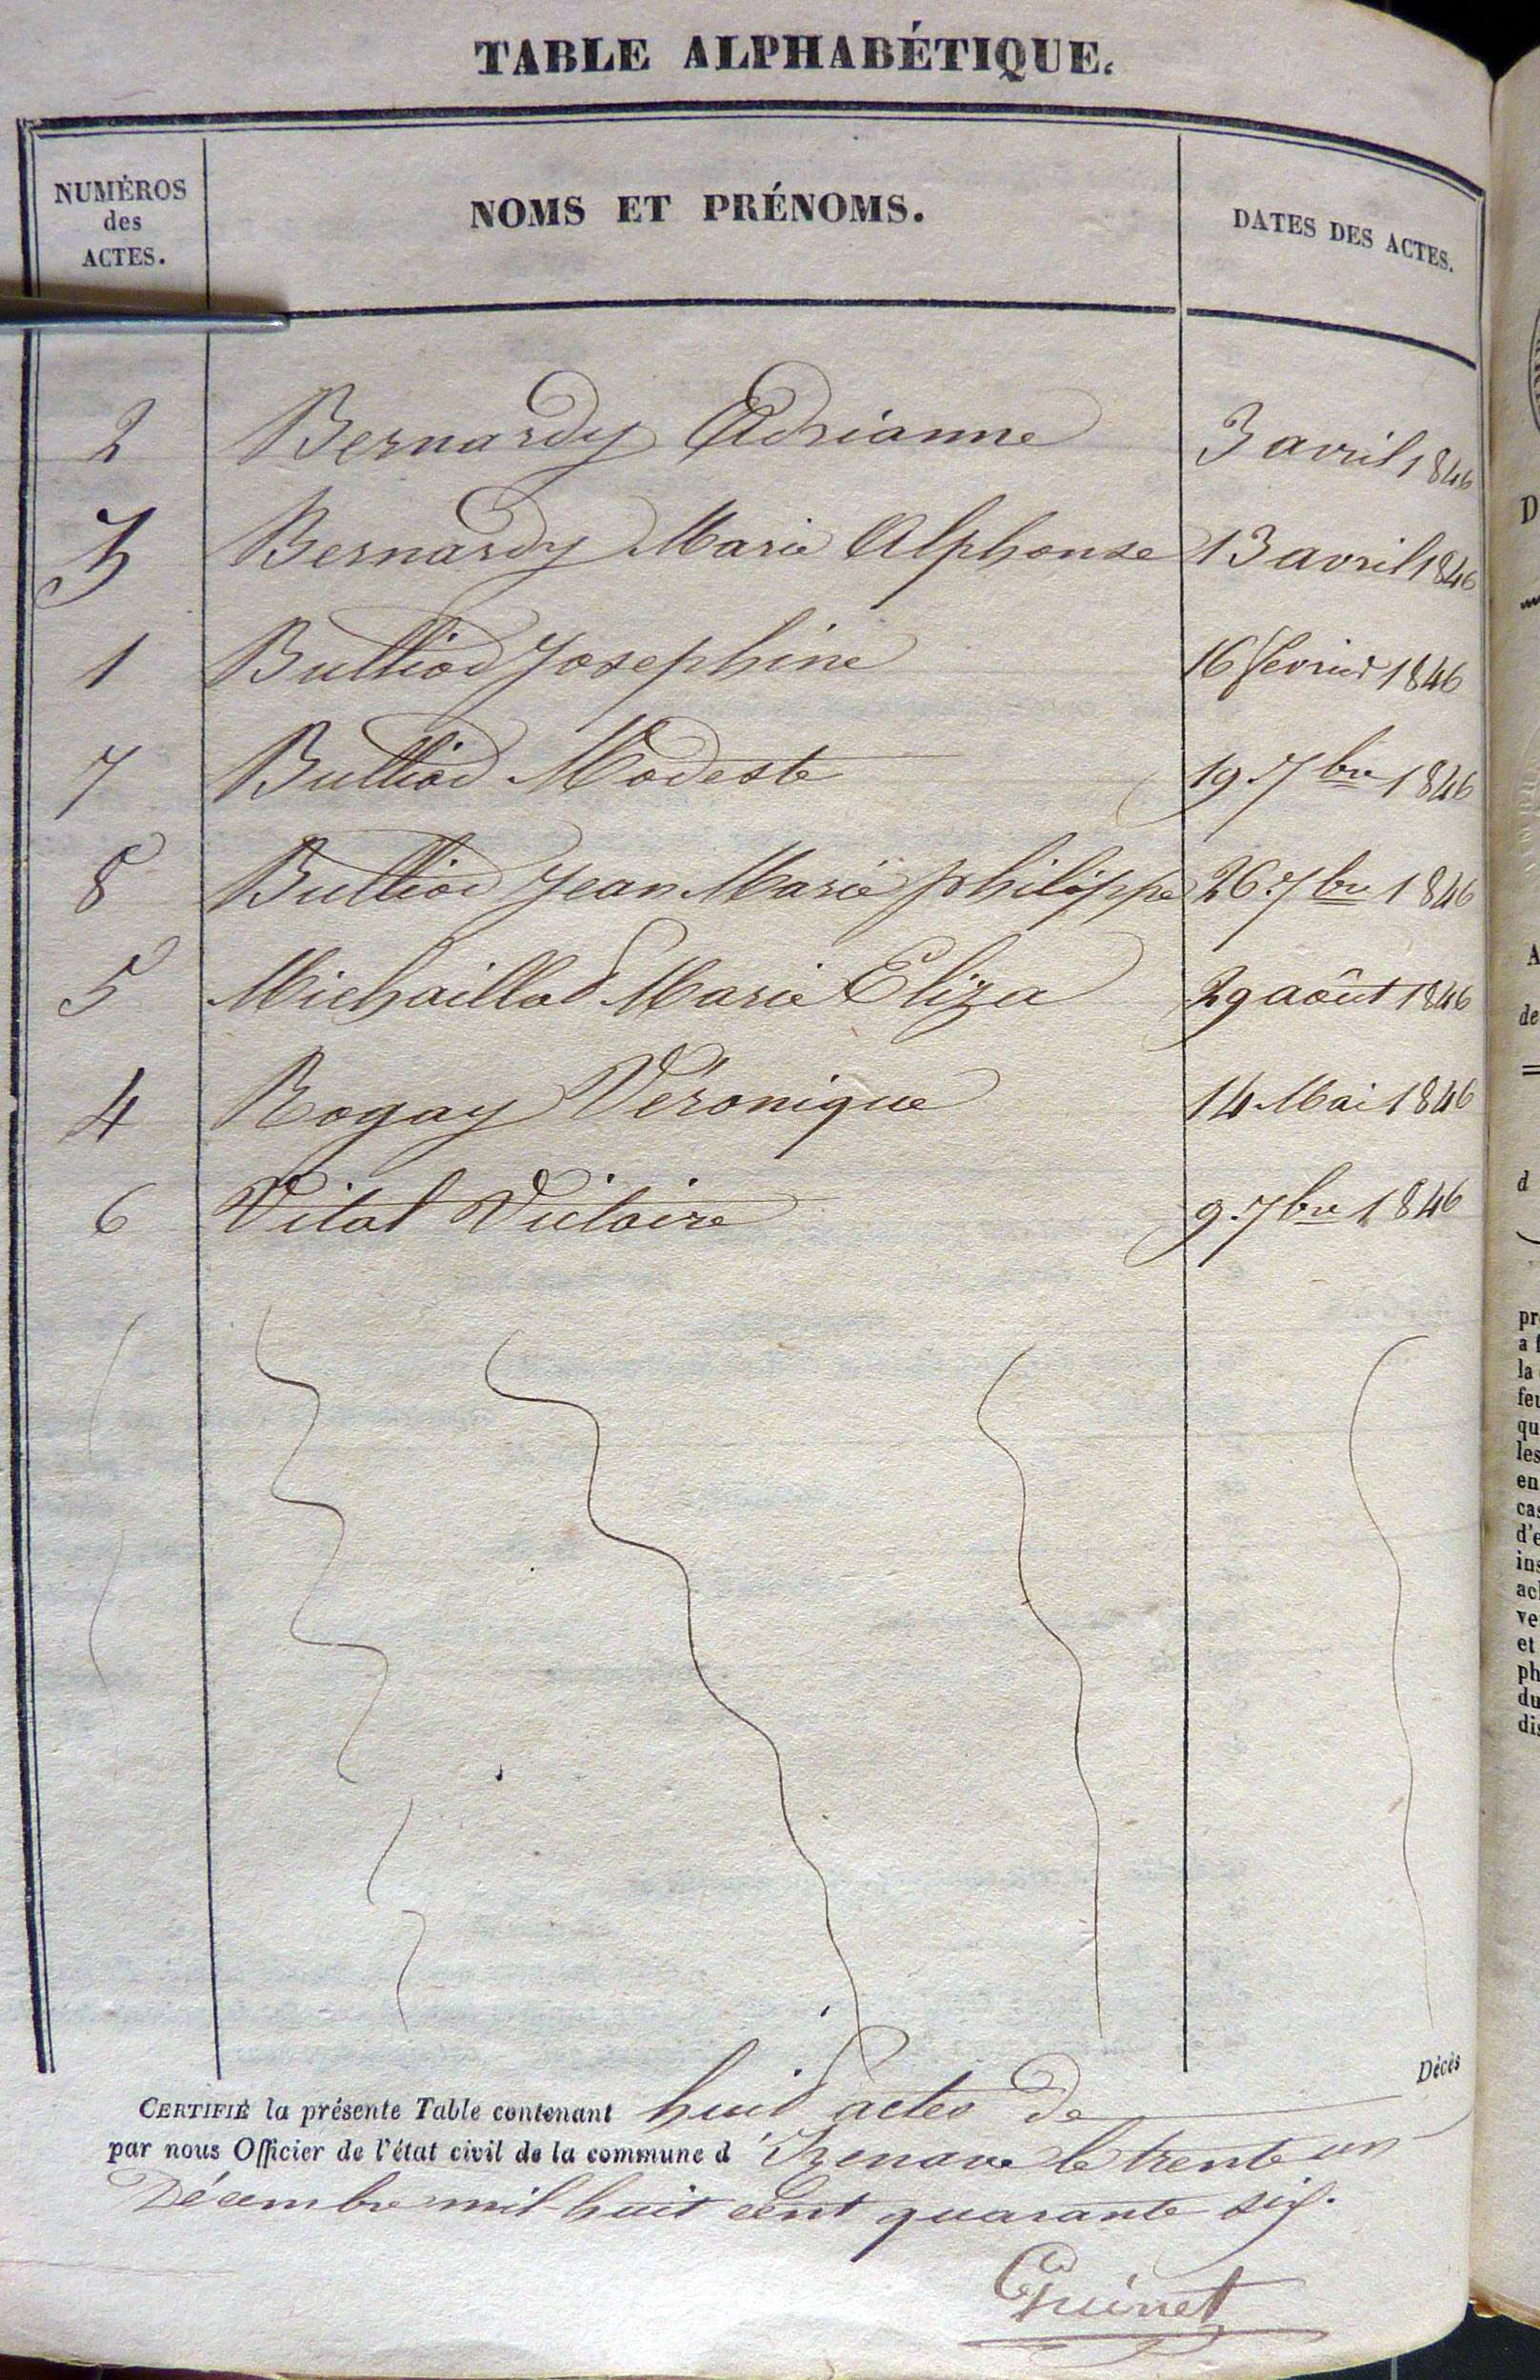 TABLE ALPHABÉTIQUE.
NUMÉROS des ACTES. NOMS ET PRÉNOMS. DATES DES ACTES.
2 Bernardy Adrianne 3 avril 1846
3 Bernardy Marie Alphonse 13 avril 1846
1 Bulliod Josephine 16 fevrier 1846
7 Bulliod Modeste 19. 7bre 1846
8 Bulliod Jean Marie philippe 26. 7bre 1846
5 Michaillod Marie Eliza 29 août 1846
4 Rogay Véronique 14 Mai 1846
6 Vital Victoire 9. 7bre 1846
Décès
CERTIFIÉ la présente Table contenant huit actes de
par nous Officier de l'état civil de la commune d'Izenave le trente un
Décembre mil huit cent quarante six.
Guinet
D
A
de
d
pr
a f
la
feu
qu
les
en
cas
d'e
ins
act
ve
et
ph
du
dis